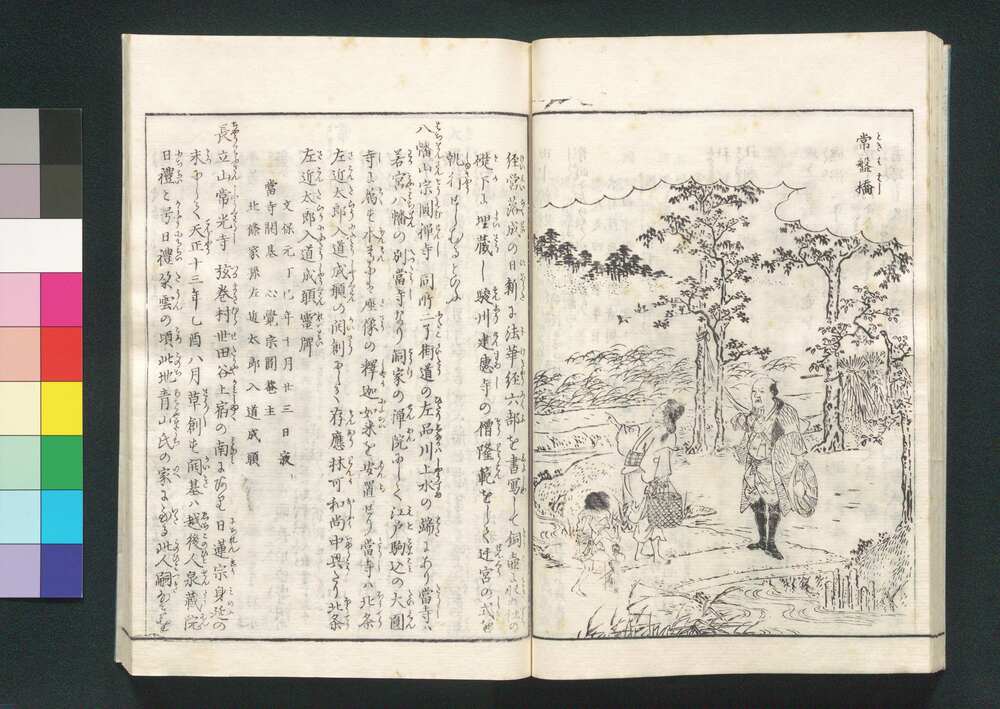 常盤橋
経営落成の日新に法華経六部を書写して銅壺に
礎下に埋蔵し駿州建慮寺の僧隆範をして迁宮の式を
執行せしむるとなん
八幡山宗圓禅寺 同所二丁街道の左品川上水の端にあり當寺ハ
若宮八幡の別當寺なり洞家の禅院にして江戸駒込の大圓
寺に属せり本尊に座像の釋迦如来を安置せり當寺ハ北条
左近太郎入道成願の開創にして存應林可和尚中興たり北条
左近太郎入道成願靈牌
文保元丁巳年十月廿三日寂
當寺開基 心覺宗圓菴主
北條家孫左近太郎入道成願
長立山常光寺 弦巻村世田谷上宿の南にあり日蓮宗身延の
末にして天正十三年乙酉八月草創す開基ハ越後人泉蔵院
日禮と号日禮 雲の頃此地青山氏の家に 此人嗣